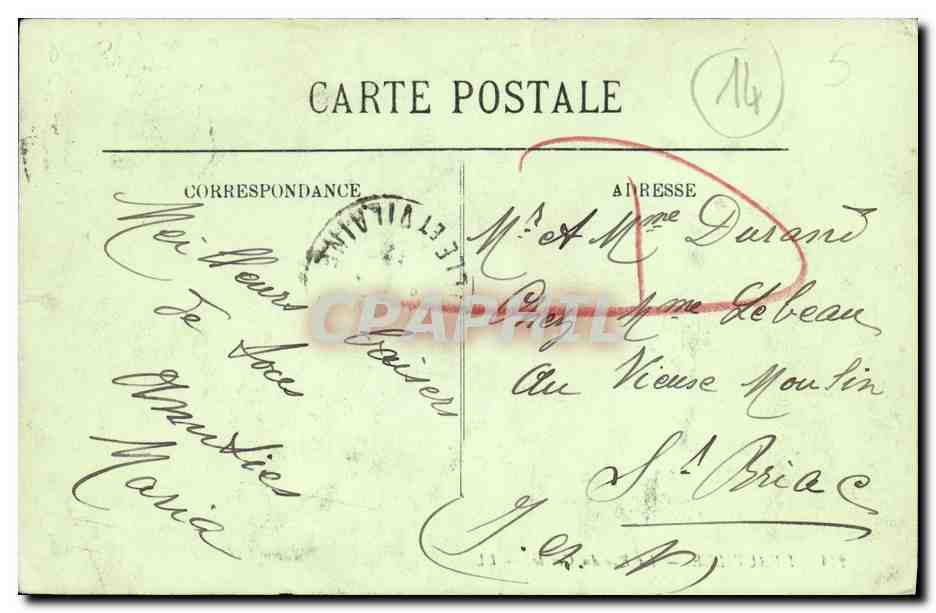 14
5
CARTE POSTALE
CORRESPONDANCE
ADRESSE
ILLE ET VILAINE
Meilleurs baisers
de tous
Amitiés
Maria
Mr et Mme Durand
Chez Mme Lebeau
au Vieuse Moulin
St Briac
(I. et V)
CPAPHIL